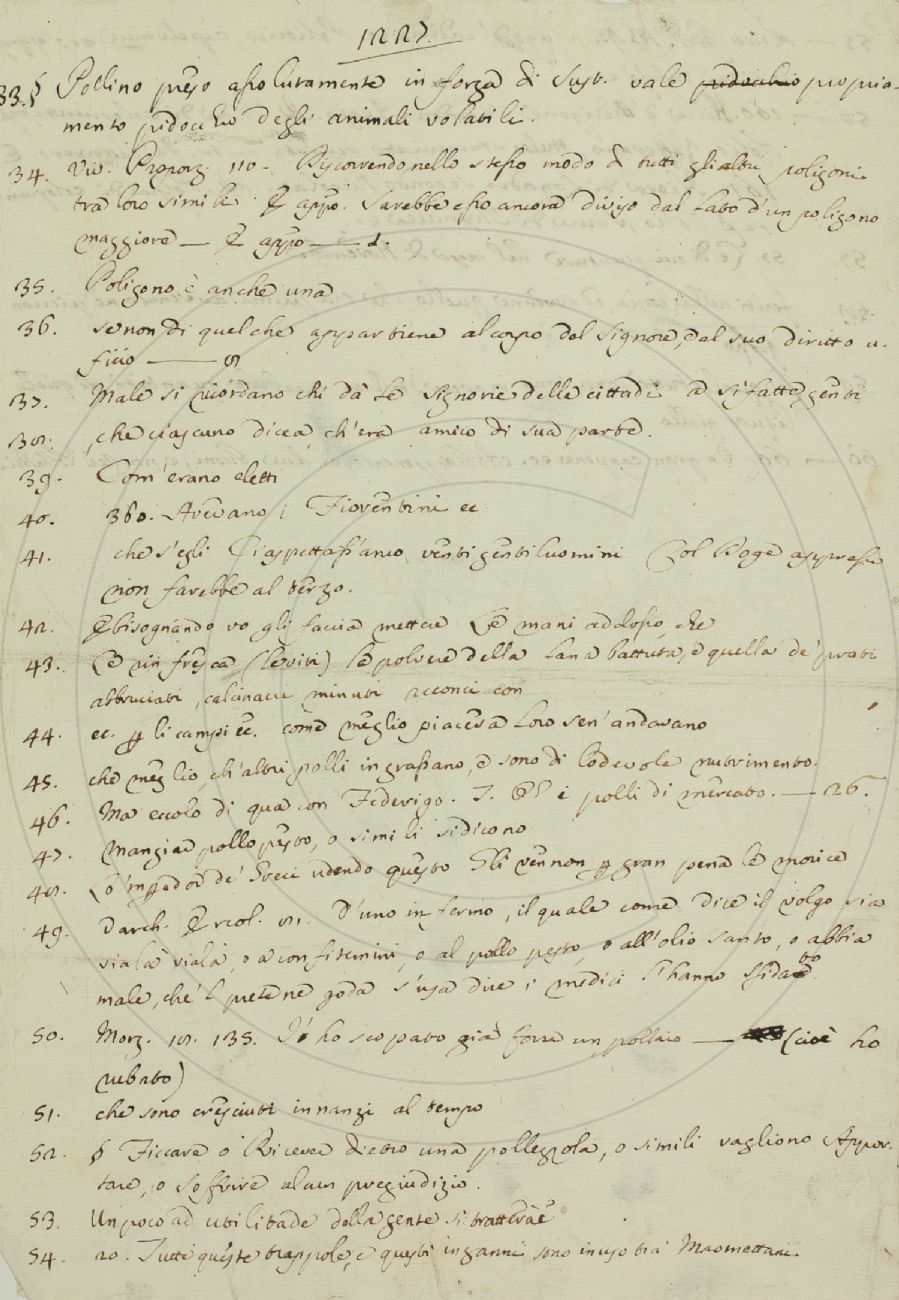 1227.
33. § Pollino preso assolutamente in forza di Sust. vale pidocchio propria-
mente pidocchio degli animali volatili.
34. Viv. Proporz. 110. Ricorrendo nello stesso modo di tutti gli altri poligoni
tra loro simili E appo. Sarebbe esso ancora diviso dal lato d'un poligono
maggiore — E appo — 1.
35. Poligono è anche una
36. se non di quel che appartiene al corpo del Signore, e al suo diritto u-
ficio — 8
37. Male si ricordano chi dà le signorie delle cittadi a sì fatte genti
38. che ciascuno dicea, ch'era amico di sua parte.
39. Com'erano eletti
40. 360. Avevano i Fiorentini ec
41. che s'egli s'aspettass'anco venti gentiluomini Col Doge appresso
non farebbe al terzo.
42. E bisognando vo gli faccia mettere Le mani addosso, che
43. Le rinfresca (le viti) la polvere della lana battuta, e quella de' prati
abbruciati, calcinacci minuti acconci con
44. ec. p li campi ec. come meglio piaceva Loro sen'andavano
45. che meglio, ch'altri polli ingrassano, e sono di lodevole nutrimento.
46. Ma eccolo di qua con Federigo. T. E i polli di mercato. — 26.
47. Mangiar pollo pesto, o simili si dicono
48. Lo 'mpador de' Greci udendo questo Gli vennon p gran pena le morice
49. Varch. Ercol. 81. D'uno infermo, il quale come dice il volgo sia
via là via là, o a confitemini, o al pollo pesto, o all'olio santo, o abbia
male, che 'l prete ne goda s'usa dire i medici l'hanno sfidato.
50. Morg. 18. 135. Io ho scopato già forse un pollaio — (cioè ho
rubato)
51. che sono cresciuti innanzi al tempo
52. § Ficcare o Ricever dietro una pollezzola, o simili vagliono Appor-
tare, o soffrire alcun pregiudizio.
53. Un poco ad utilitade della gente si tratterà è
54. 20. Tutte queste trappole, e questi inganni sono in uso tra Maomettani.